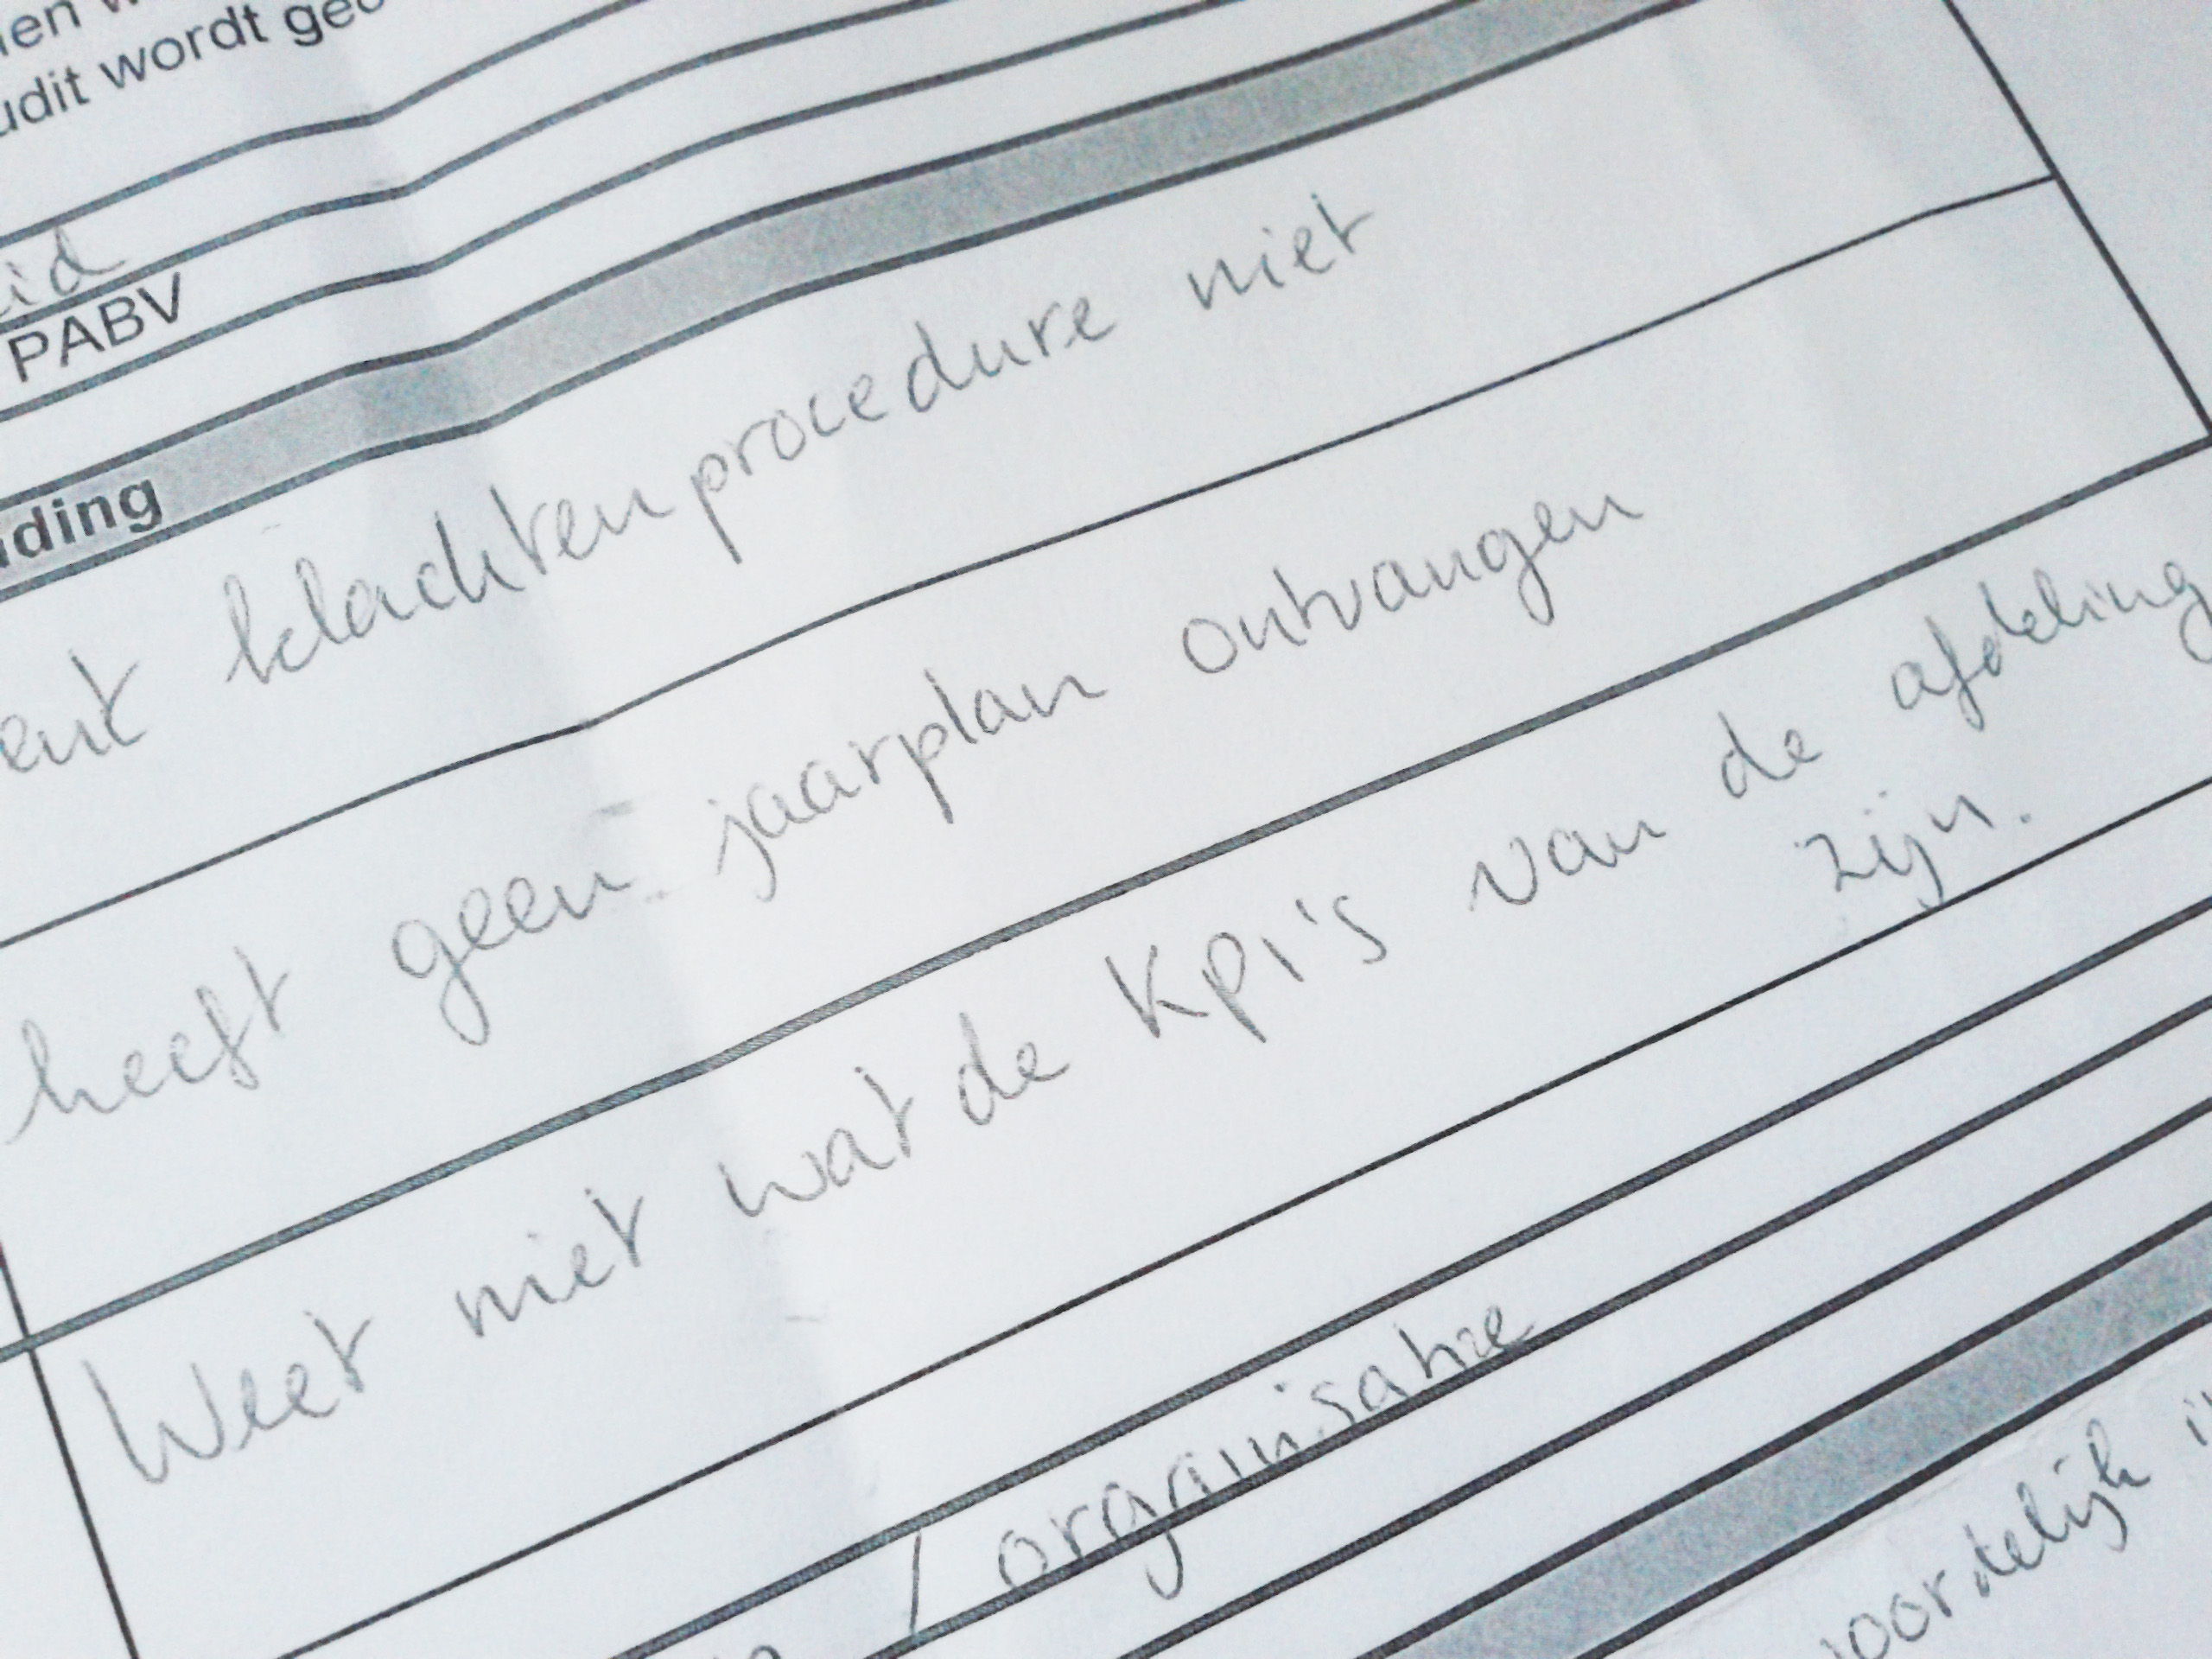 udit wordt geo
PABV
klachtenprocedure niet
heeft geen jaarplan ontvangen
Weet niet wat de KPI's van de afdeling
zijn.
/ organisatie